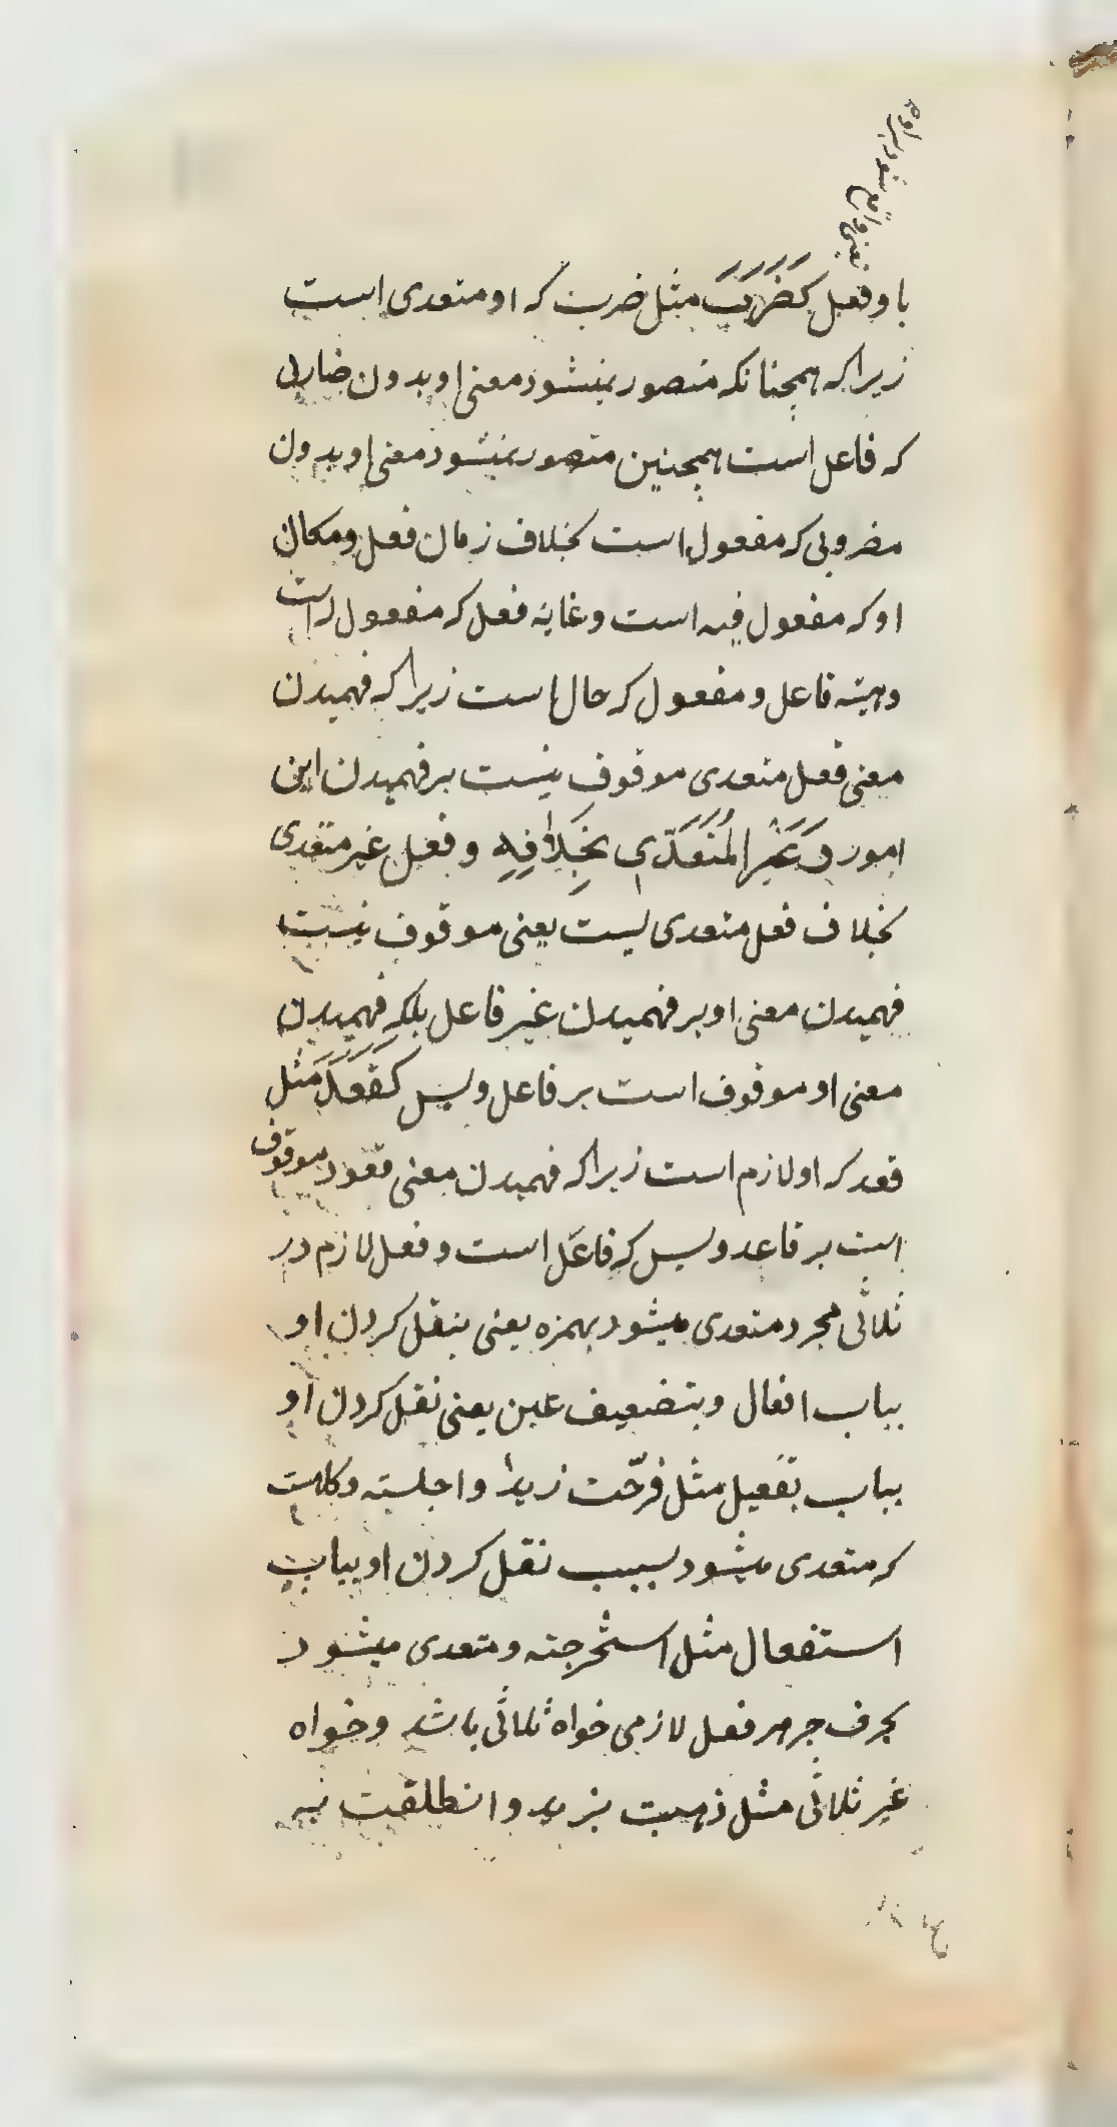 یعنی واقع شود بر او
باو فعل كَضَرَبَ مثل ضرب که او متعدی است
زیرا که همچنانکه متصور نمیشود معنی او بدون ضاربی
که فاعل است همچنین متصور نمیشود معنی او بدون
مضروبی که مفعول است بخلاف زمان فعل و مکان
او که مفعول فیه است و غایة فعل که مفعول له است
وهیئة فاعل و مفعول که حال است زیرا که فهمیدن
معنی فعل متعدی موقوف نیست بر فهمیدن این
امور وَغَيْرُ الْمُتَعَدِّي بِخِلَافِهِ و فعل غیر متعدی
بخلاف فعل متعدی لیست یعنی موقوف نیست
فهمیدن معنی او بر فهمیدن غیر فاعل بلکه فهمیدن
معنی او موقوف است بر فاعل وبس كَقَعَدَ مثل
قعد که او لازم است زیرا که فهمیدن معنی قعود موقوف
است بر قاعد وبس که فاعل است و فعل لازم در
ثلاثی مجرد متعدی میشود بهمزه یعنی بنقل کردن او
بباب افعال و بتضعیف عین یعنی نقل کردن او
بباب تفعیل مثل فرّحت زیدا و اجلسته و کاهست
که متعدی میشود بسبب نقل کردن او بباب
استفعال مثل استخرجته و متعدی میشود
بحرف جر هر فعل لازمی خواه ثلاثی باشد و خواه
غیر ثلاثی مثل ذهبت بزید و انطلقت به